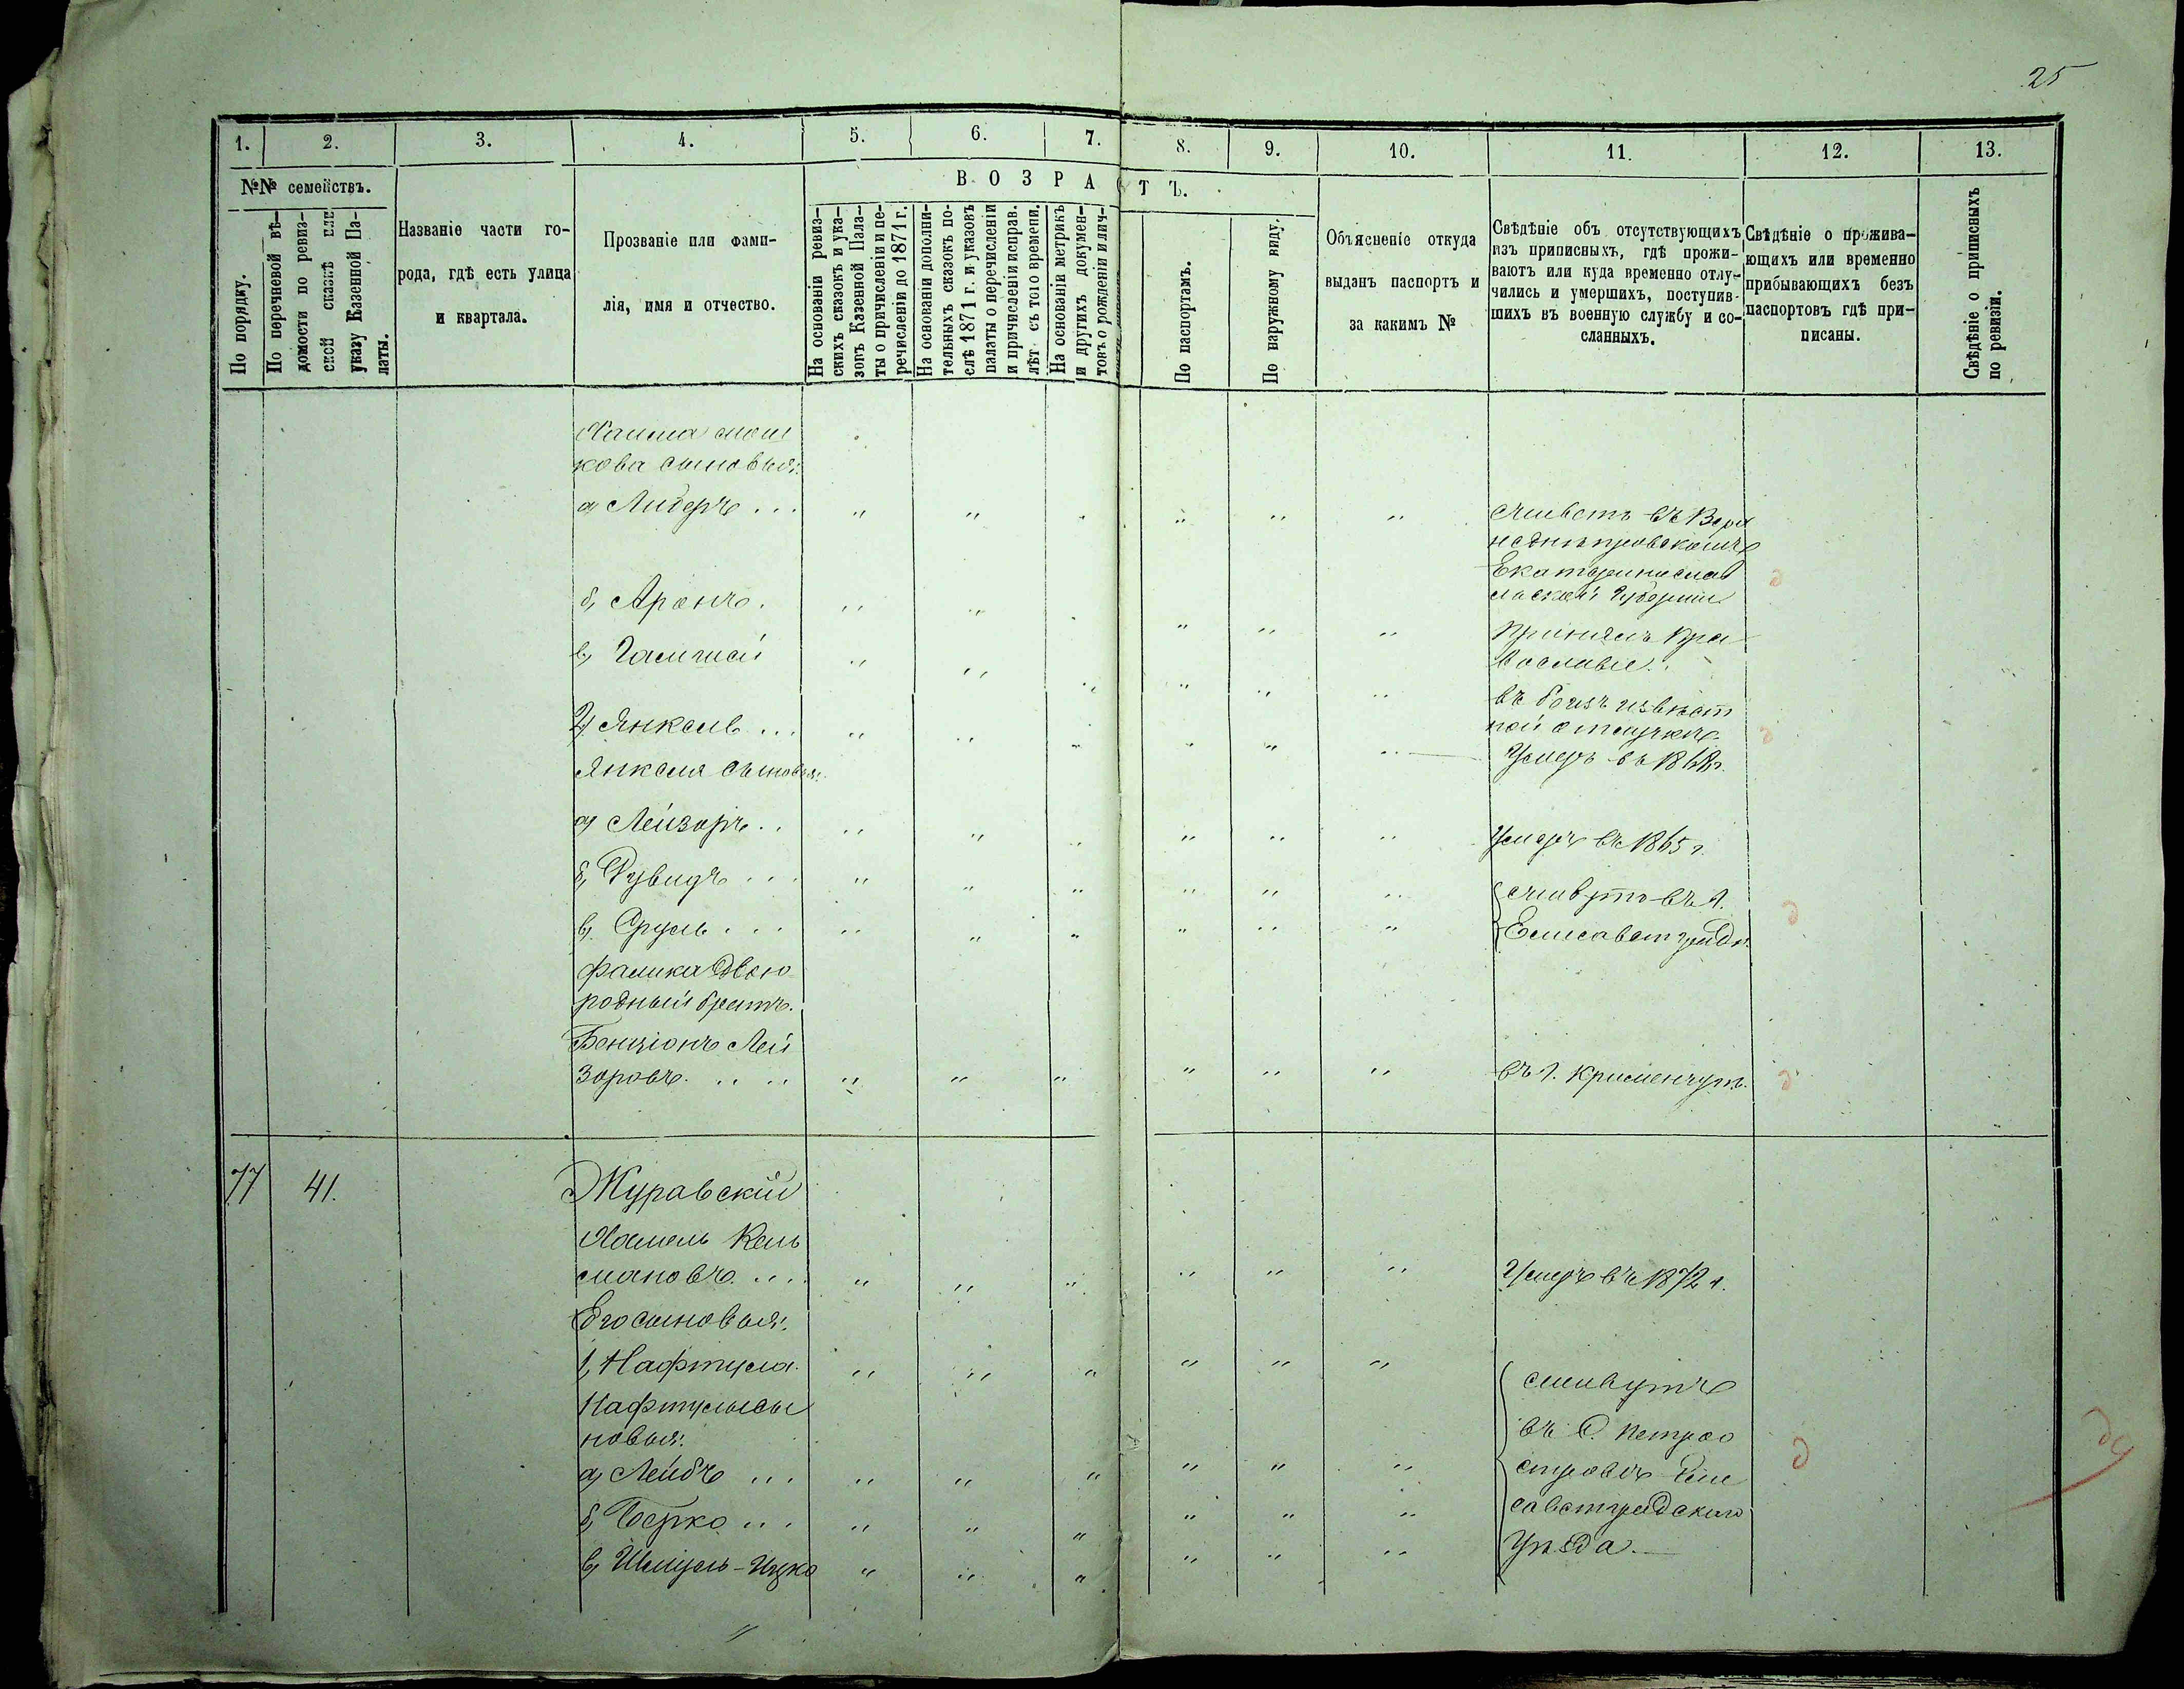 25
1. 2. 3. 4. 5. 6. 7. 8. 9. 10. 11. 12. 13.
№№ семействъ.
В О З Р А С Т Ъ.
По порядку.
По перечневой вѣ-
домости по ревиз-
ской сказкѣ или
указу Казенной Па-
латы.
Названіе части го-
рода, гдѣ есть улица
и квартала.
Прозваніе или фами-
лія, имя и отчество.
На основаніи ревиз-
скихъ сказокъ и ука-
зовъ Казенной Пала-
ты о причисленіи и пе-
речисленіи до 1871 г.
На основаніи дополни-
тельныхъ сказокъ по-
слѣ 1871 г. и указовъ
палаты о перечисленіи
и причисленіи исправ.
лѣт съ того времени.
На основаніи метрикъ
и другихъ докумен-
товъ о рожденіи и лич-
По паспортамъ.
По наружному виду.
Объясненіе откуда
выданъ паспортъ и
за какимъ №
Свѣдѣніе объ отсутствующихъ
изъ приписныхъ, гдѣ прожи-
ваютъ или куда временно отлу-
чились и умершихъ, поступив-
шихъ въ военную службу и со-
сланныхъ.
Свѣдѣніе о прожива-
ющихъ или временно
прибывающихъ безъ
паспортовъ гдѣ при-
писаны.
Свѣдѣніе о приписныхъ
по ревизіи.
Хаима Мош
кова сыновья:
а, Либеръ . . . " " " " " " Живетъ въ Верх
недніпровскомъ
Екатеринослав
ской Губерніи
б, Аронъ. " " " " " " Принялъ Пра
вославіе.
в, " " " " " " въ безъизвѣст
ной отлучкѣ
г, Янкель . . . " " " " " " Умеръ въ 1868г.
Янкеля сыновья:
а, Лейзоръ . . " " " " " " Умеръ въ 1865 г.
б, Рувидъ . . . " " " " " " Живутъ въ г.
в, Сруль . . . " " " " " " Елисаветградѣ.
Фалика двою
родный братъ.
Бенціонъ Лей
зоровъ. . . . . " " " " " " въ г. Кременчугѣ.
77 41. Журавскій
Хаимъ Кель
мановъ. . . . " " " " " " Умеръ въ 1872 г.
Его сыновья:
1, Нафтула. " " " " " " Живутъ
Нафтулы сы
новья: въ С. Петро
а, Лейбъ . . . " " " " " " островѣ Ели
б, Берко . . . " " " " " " саветградскаго
в, Шмуль-Ицко " " " " " " Уѣзда.